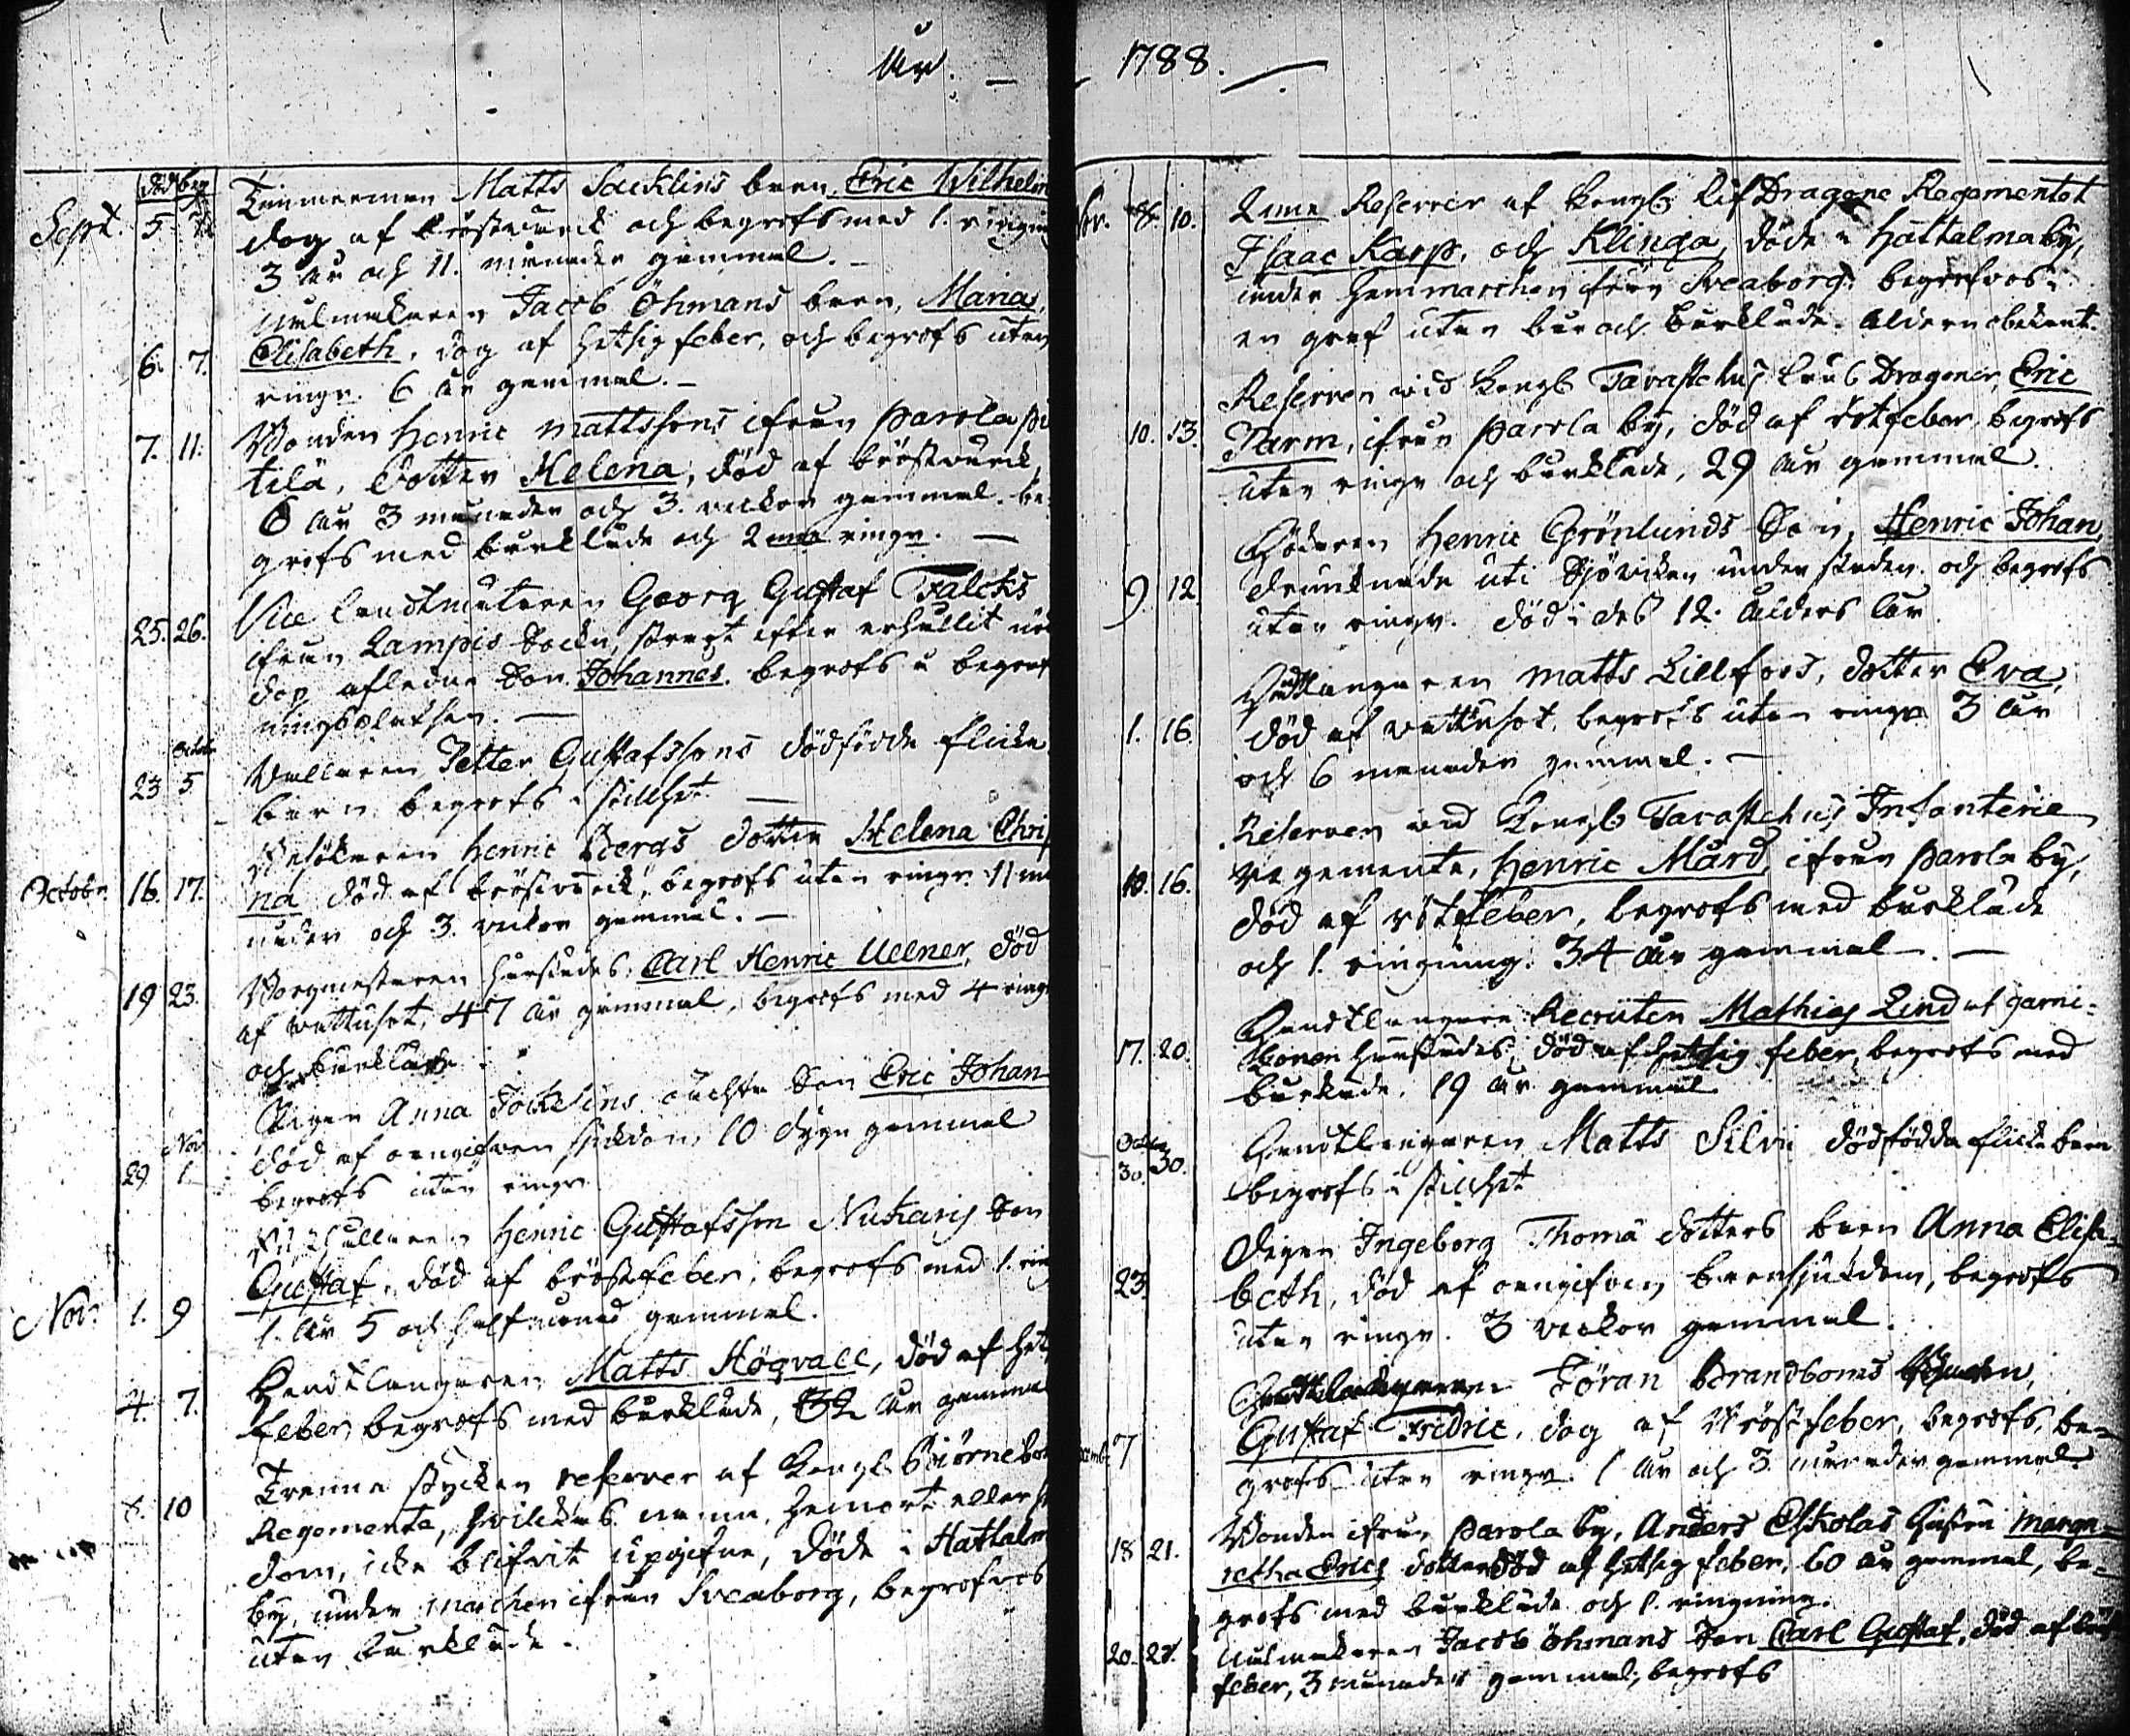 År. — 1788.
död beg
Sept. 5 7 Timmerman Matts Sacklins barn, Eric Wilhelm
dog af bröstwärck och begrofs med 1. ringni
3 år och 11. månader gammal. —
Julmakaren Jacob Öhmans barn, Maria
6. 7. Elisabeth, dog af hetsig feber, och begrofs utan
ringn. 6 år gammal. —
7. 11. Bonden Henric Mattssons ifrån Parola
tilä, dotter Helena, död af bröstwärck,
6 år 3 månader och 3. wickor gammal. be-
grofs med bårkläde och 2 ringn. —
Vice Landtmätaren Georg Gustaf Falcks
25. 26. ifrån Lampis Sockn, strax efter erhållit nöd
dop aflidne Son Johannes. begrofs å begraf
ningsplatsen. —
Octobr
23 5 Wallaren Petter Gustafssons dödfödde flicke
barn begrofs i stillhet. —
Besökaren Henric Bergs dotter Helena Chri
Octobr. 16. 17. na död af bröstwärck, begrofs utan ringn. 11 må
nader och 3. wickor gammal. —
Borgmästaren härstädes, Carl Henric Uelner, död
19 23. af wattusot, 47 år gammal, begrofs med 4 ring
och bårkläde
Pigan Anna Jockelins oächta Son Eric Johan
Nov
29 1. död af oangifwen siukdom, 10 dygn gammal
begrofs utan ringn
Henric Gustafsson Nukaris Son
Nov. 1. 9 Gustaf, död af bröstfeber, begrofs med 1. rin
1. år 5 och half månad gammal.
Handtlangaren Matts Högvall, död af het
4. 7. feber, begrofs med bårkläde, 32 år gamma
Trenne stycken reserver af Kongl. Biörnebo
8. 10 Regemente, hwilckas namn, hemort eller
dom, icke blifwit upgifne, döde i Hattalm
by, under marchen ifrån Sveaborg, begrofvos
utan bårkläde.
Nov. 8. 10. 2ne Reserver af Kongl. Lif Dragone Regementet
Isaac Karp, och Klinga, döde i Hattalma by,
under hemmarchen ifrån Sveaborg. begrofvos i
en graf utan bår och bårkläde. Åldern obekant.
Reserven wid Kongl. Tavastehus Läns Dragoner, Eric
10. 13. Parm, ifrån Parola by, död af rötfeber, begrofs
utan ringn och bårkläde, 29 år gammal.
Henric Grönlunds Son, Henric Johan,
9 12 drunknade uti Sjöwiken under staden och begrofs
utan ringn. död i des 12. ålders år
Matts Lillfors, dotter Eva,
1. 16. död af wattusot, begrofs utan ringn 3 år
och 6 månader gammal. —
Reserven wid Kongl. Tavastehus Infanterie
10. 16. regemente, Henric Mård, ifrån Parola by,
död af rötfeber, begrofs med bårkläde
och 1. ringning. 34 år gammal. —
Handtlangare Recruten Mathias Lind af garni-
17. 20. sonen härstädes, död af hetsig feber, begrofs med
bårkläde, 19 år gammal
Octobr
30. 30. Handtlangaren Matts Silvi dödfödda flicke barn
begrofs i stillhet
Pigan Ingeborg Thomä dotters barn Anna Elisa-
23. beth, död af oangifven barnsjukdom, begrofs
utan ringn. 3 veckor gammal.
Handtlangaren Jöran Brandboms
7 Gustaf Fredric, dog af Bröstfeber, begrofs, be-
grofs utan ringn. 1 år och 3. månader gammal.
18 21. Bonden ifrån Parola by, Anders Eskolas hustru Marga-
retha Erics dotter död af hetsig feber, 60 år gammal, be-
grofs med bårkläde och 1. ringning.
20. 27. Julmakaren Jacob Öhmans Son Carl Gustaf, död af
feber, 3 månader gammal, begrofs